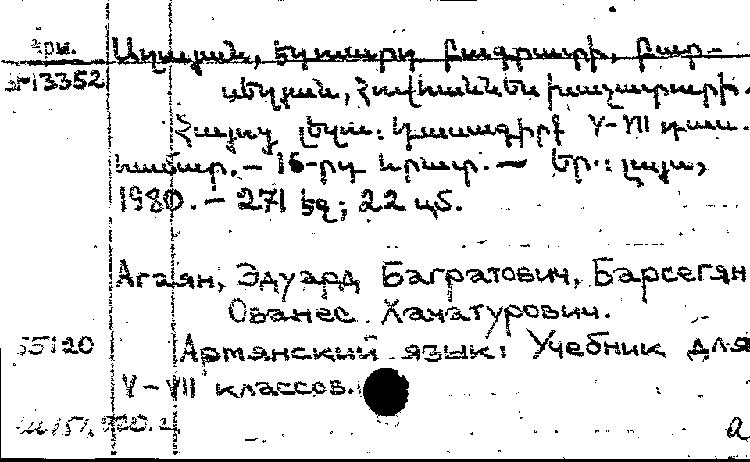 Арм. Աղայան, Էդուարդ Բագրատի, Բար-
3-13352 սեղյան, Հովհաննես Խաչատուրի.
Հայոց լեզու: Դասագիրք V-VII դաս.
համար. — 16-րդ հրատ. — Եր.: Լույս,
1980. — 271 էջ; 22 սմ.
Агаян, Эдуард Багратович, Барсегян
Ованес Хачатурович.
55120 Армянский язык: Учебник для
V-VII классов.
a